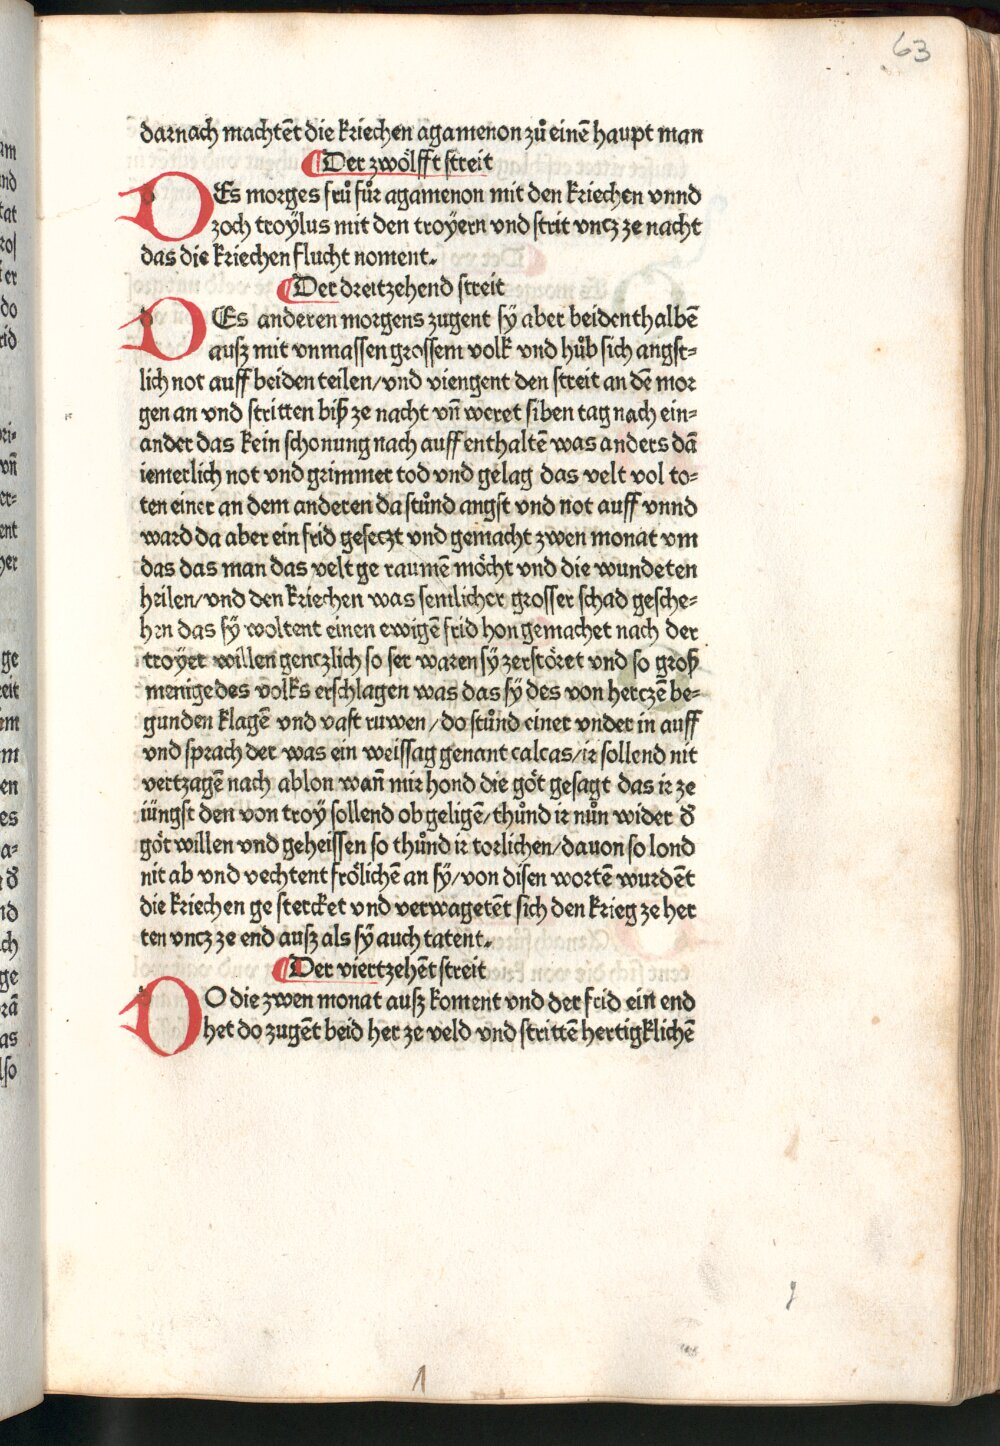 63
darnach machtēt die kriechen agamenon zů einē haupt man
Der zwölfft streit
DEs morges frů fůr agamenon mit den kriechen vnnd
zoch troÿlus mit den troÿern vnd strit vncz ze nacht
das die kriechen flucht noment.
Der dreitzehend streit
DEs anderen morgens zugent sÿ aber beidenthalbē
ausz mit vnmassen grossem volk vnd hůb sich angst=
lich not auff beiden teilen/vnd viengent den streit an dē mor
gen an vnd stritten biß ze nacht vn̄ weret siben tag nach ein=
ander das kein schonung nach auff enthaltē was anders dā
iemerlich not vnd grimmer tod vnd gelag das velt vol to=
ten einer an dem anderen da stůnd angst vnd not auff vnnd
ward da aber ein frid geseczt vnd gemacht zwen monat vm
das das man das velt ge raumē möcht vnd die wundeten
heilen/vnd den kriechen was semlicher grosser schad gesche=
hen das sÿ woltent einen ewigē frid hon gemachet nach der
troyer willen genczlich so ser waren sÿ zerstöret vnd so groß
menige des volks erschlagen was das sÿ des von herczē be=
gunden klagē vnd vast ruwen/do stůnd einer vnder in auff
vnd sprach der was ein weissag genant calcas/ir sollend nit
vertzagē nach ablon wan̄ mir hond die göt gesagt das ir ze
iüngst den von troy sollend ob geligē/thůnd ir nůn wider d̕
göt willen vnd geheissen so thůnd ir torlichen/dauon so lond
nit ab vnd vechtent frölichē an sÿ/von disen wortē wurdēt
die kriechen ge stercket vnd verwagetēt sich den krieg ze her
ten vncz ze end ausz als sÿ auch tatent.
Der viertzehēt streit
DO die zwen monat ausz koment vnd der frid ein end
het do zugēt beid her ze veld vnd strittē hertigklichē